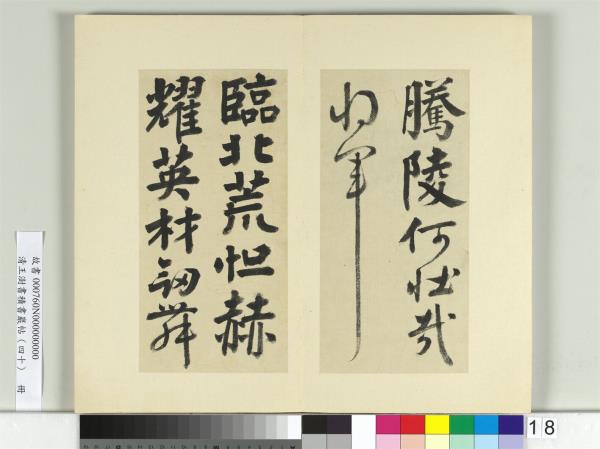 騰陵何壯哉
将軍
臨北荒怛赫
耀英材劒舞
故書 000760N000000000
清王澍書積書巖帖（四十） 冊
18